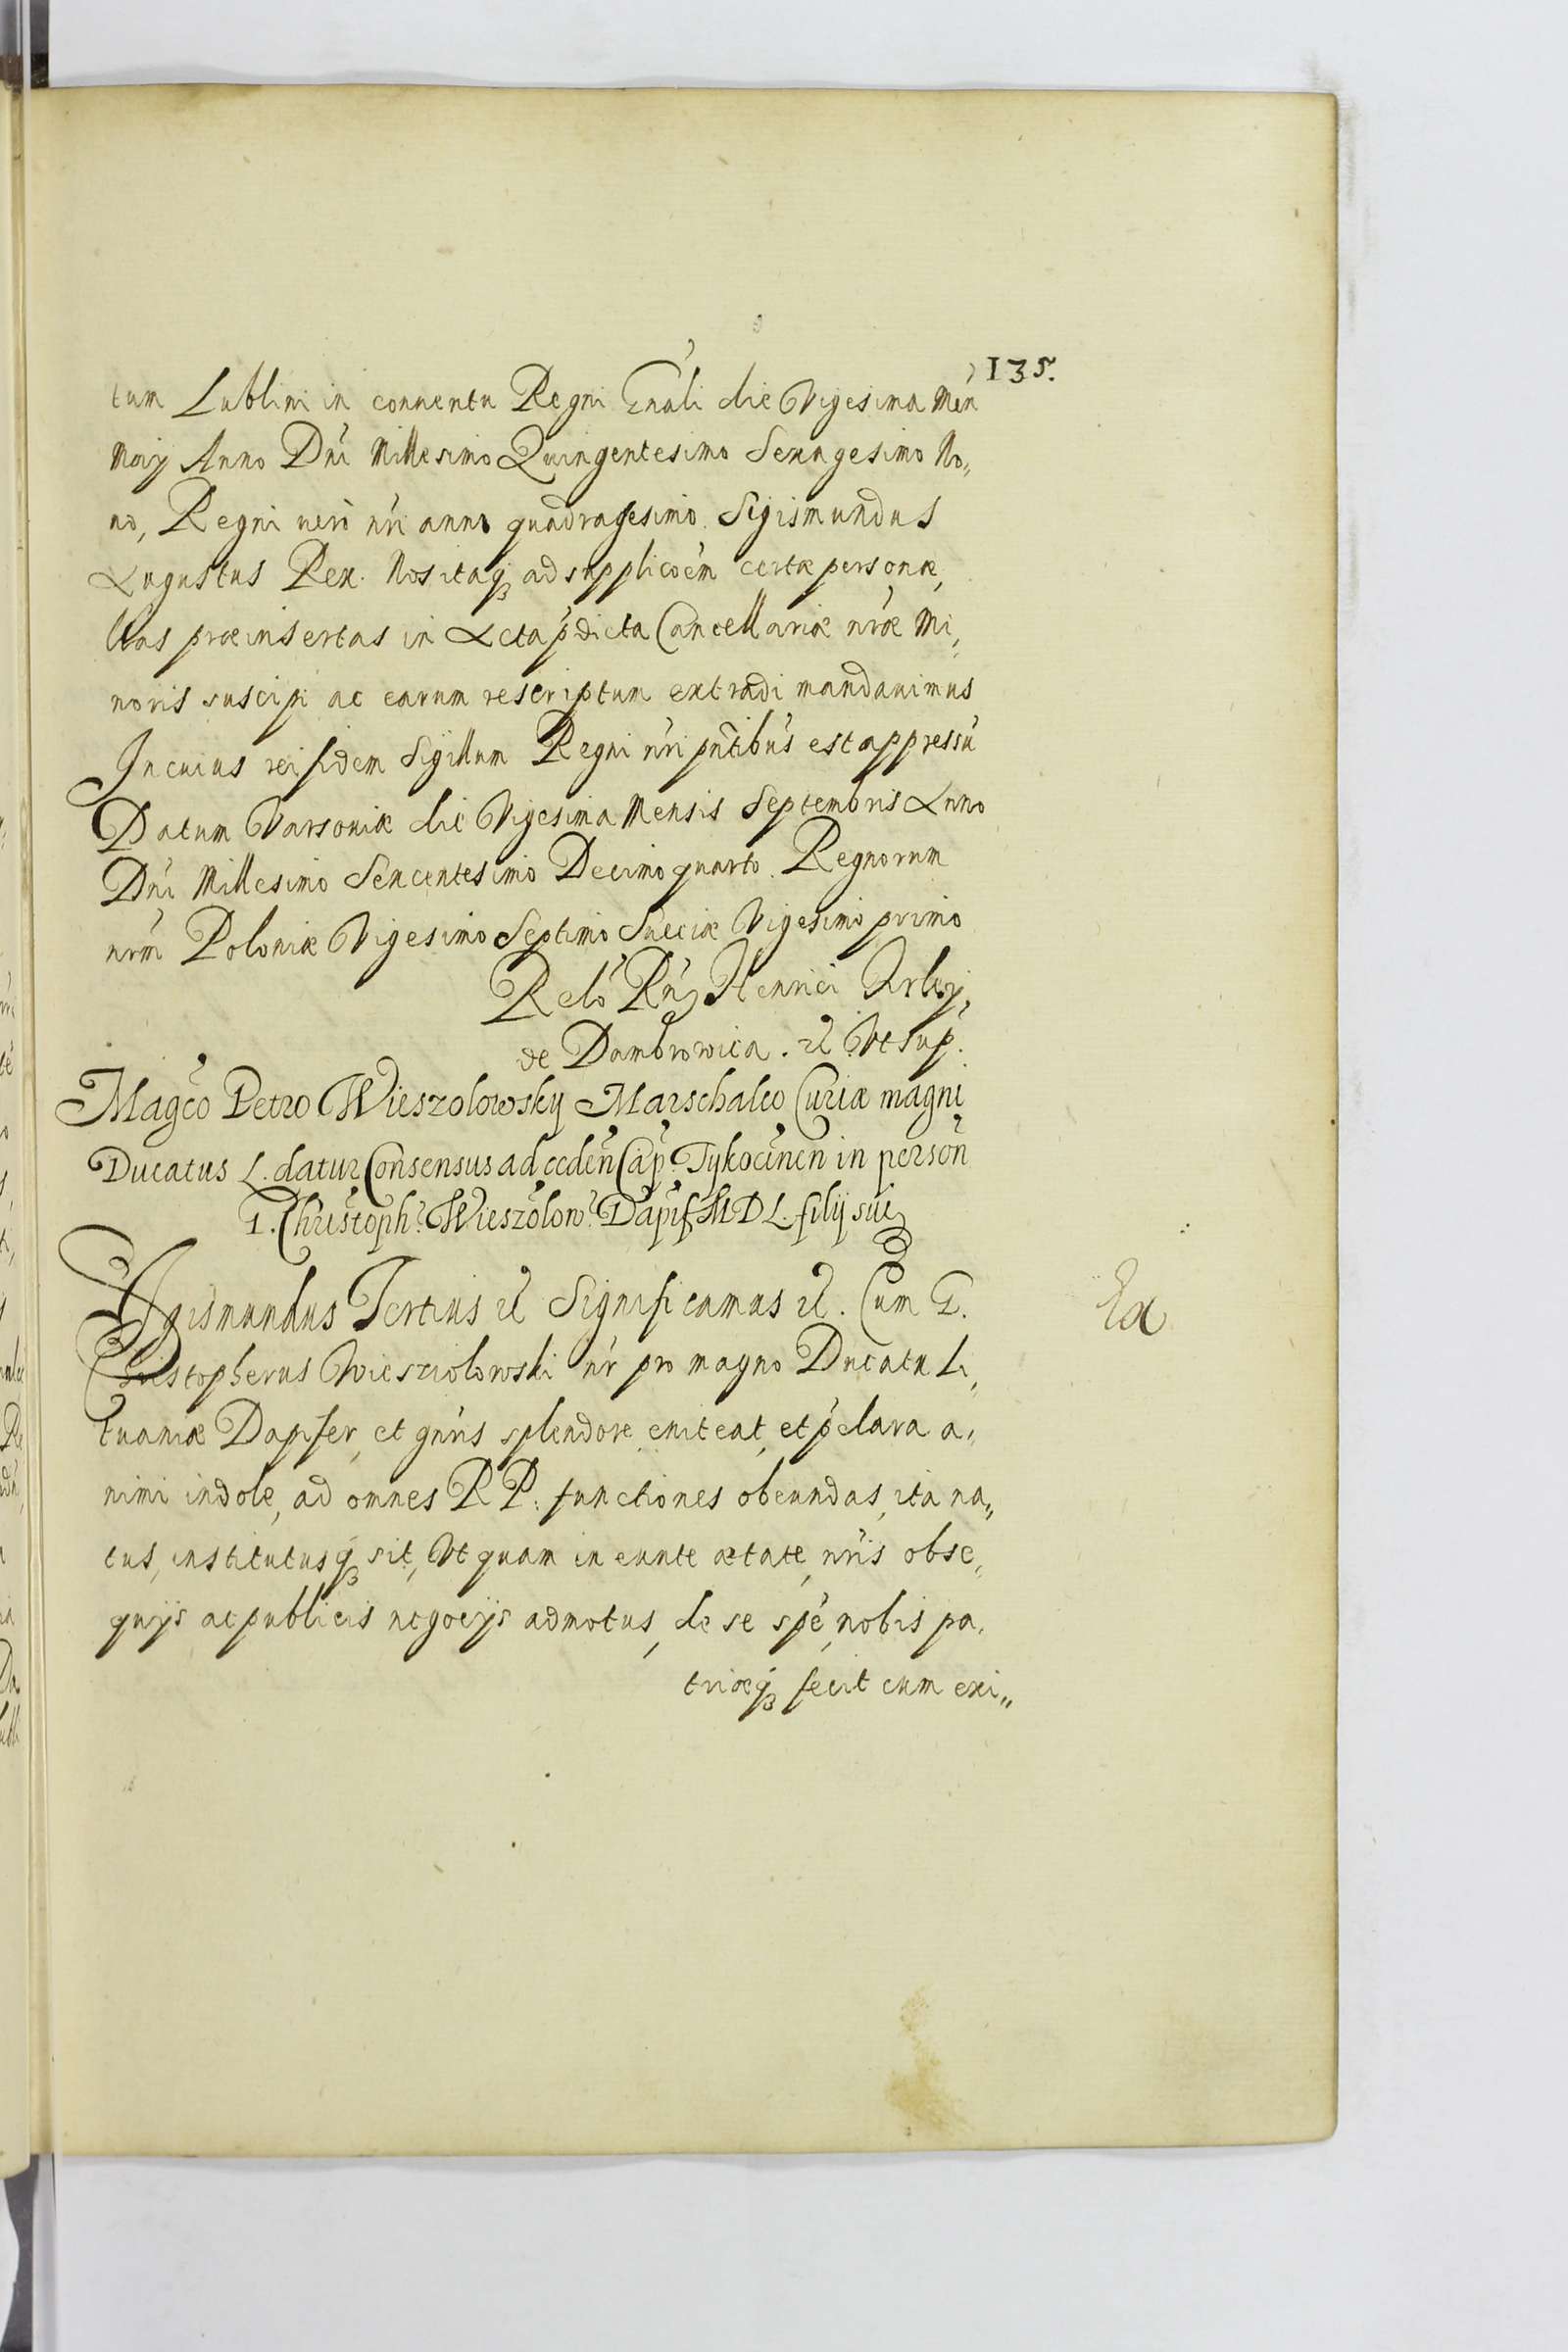 135.
tum Lublini in conuentu Regni Gnali die Vigesima Men
Maij Anno Dni Millesimo Quingentesimo Sexagesimo No„
no, Regni vero nri anno quadragesimo. Sigismundus
Augustus Rex. Nos itaq; ad supplicoem certæ personæ,
lras præinsertas in Acta pdicta Cancellariæ nræ Mi„
noris suscipi ac earum rescriptum extradi mandauimus
In cuius rei fidem Sigillum Regni nri pntibus est appressu
Datum Varsoniæ die Vigesima Mensis Septembris Anno
Dni Millesimo Sexcentesimo Decimo quarto. Regnorum
nrm Poloniæ Vigesimo Septimo Sueciæ Vigesimo primo
Relo Rn Henrici Firley,
de Dambrowica. et Vt sup.
Magco Petro Wieszolowsky Marschalco Curiæ magni
Ducatus L. datur Consensus ad ceden Cap. Tykocinen in person
G. Christoph. Wieszolow. Dapif M D L. filij sui
Sigismundus Tertius et Significamus et. Cum G.
Christopherus Wiesziolowski nr pro magno Ducatu Li„
tuaniæ Dapifer, et gnris splendore eniteat, et pclara a„
nimi indole, ad omnes R P: functiones obeundas, ita na„
tus, institutusq; sit, Vt quam in eunte ætate, nris obse„
quijs ac publicis negocijs admotus, de se spe, nobis pa„
triæq; fecit cum exi„